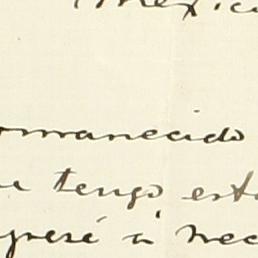 Mexico
rmanecido
e tengo est
gresé á Mec